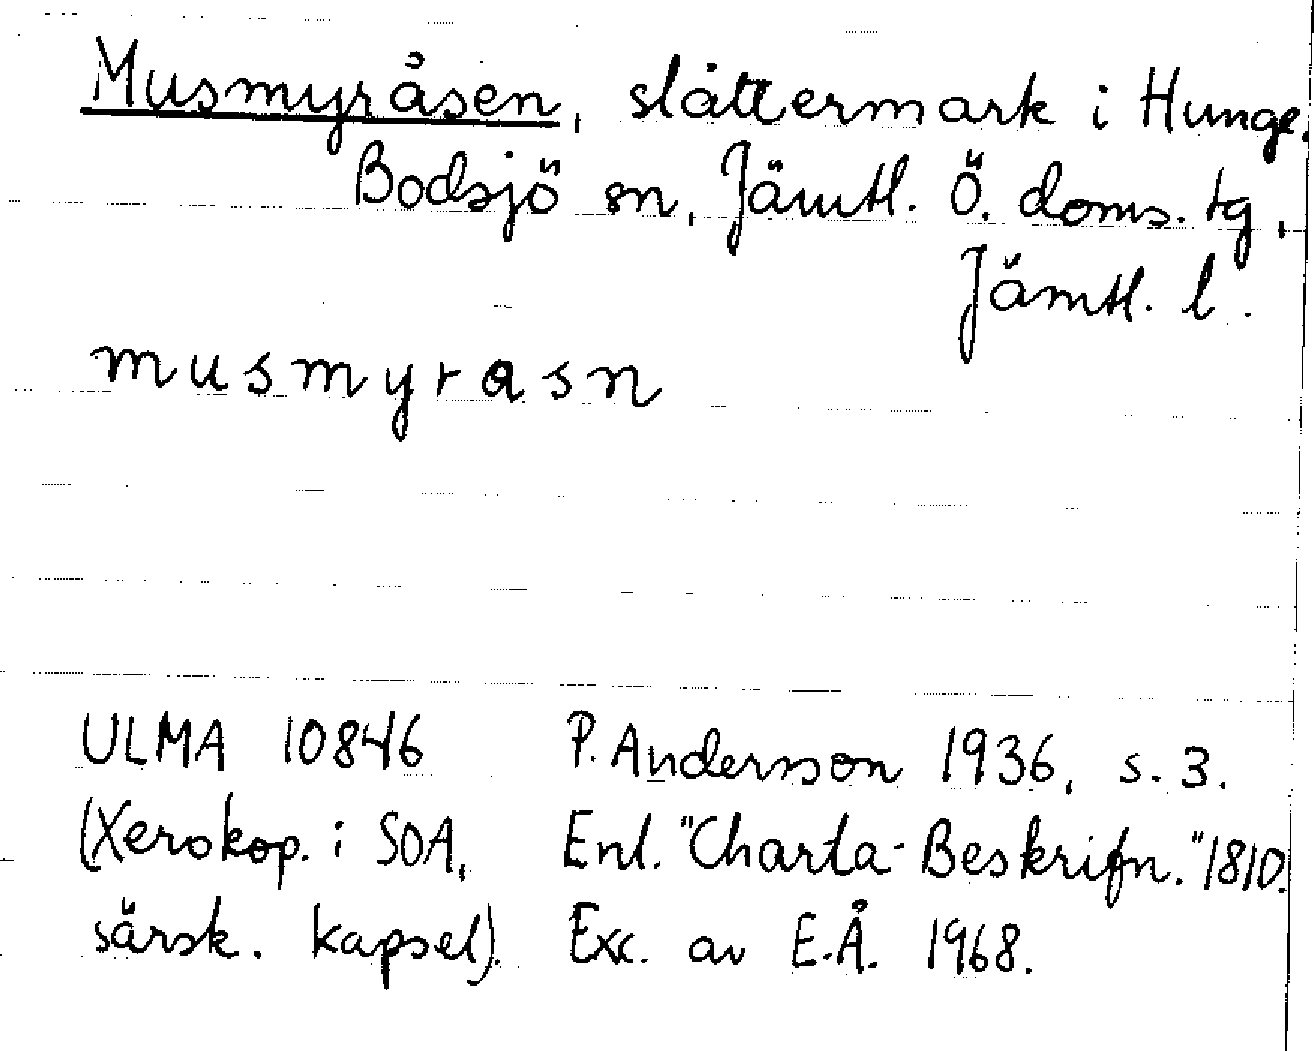 Musmyråsen, slåttermark i Hunge.
Bodsjö sn, Jämtl. Ö. doms. tg,
Jämtl. l.
musmyrasn
ULMA 10846 P. Andersson 1936, s. 3.
(Xerokop. i SOA, Enl. "Charta-Beskrifn." 1810.
särsk. kapsel). Exc. av E.Å. 1968.